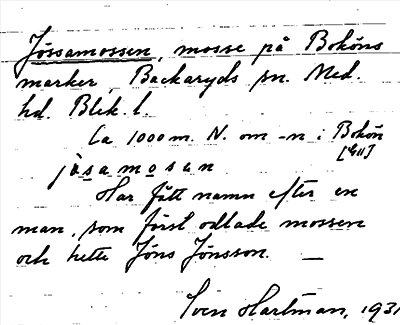 Jössamossen, mosse på Boköns
marker, Backaryds sn. Med.
hd. Blek. l.
Ca 1000 m. N. om -n i Bokön
[Ell]
jösamosen
Har fått namn efter en
man, som först odlade mossen
och hette Jöns Jönsson. —
Sven Hartman, 1931